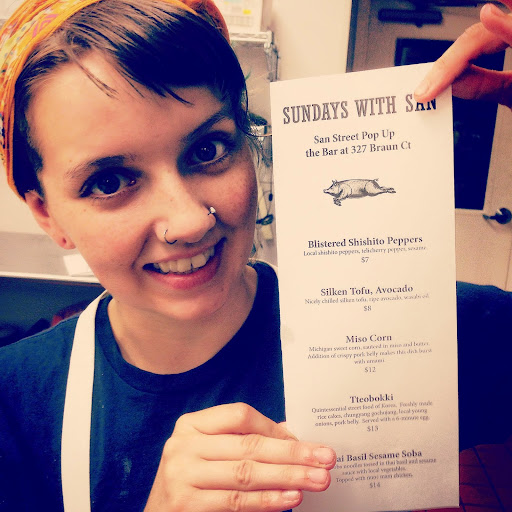 SUNDAYS WITH SAN
San Street Pop Up
the Bar at 327 Braun Ct
Blistered Shishito Peppers
Local shishito peppers, tellicherry pepper, sesame.
$7
Silken Tofu, Avocado
Nicely chilled silken tofu, ripe avocado, wasabi oil.
$8
Miso Corn
Michigan sweet corn, sauteed in miso and butter.
Addition of crispy pork belly makes this dish burst
with umami.
$12
Tteobokki
Quintessential street food of Korea. Freshly made
rice cakes, chungyang gochujang, local young
onions, pork belly. Served with a 6 minute egg.
$13
Basil Sesame Soba
noodles tossed in thai basil and sesame
sauce with local vegetables.
Topped with moo team chicken.
$14